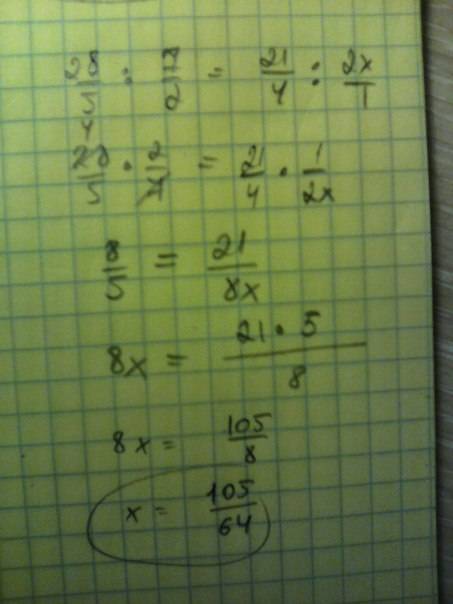 28/5 : 7/2 = 21/4 : 2x/1
4
28/5 · 2/7 = 21/4 · 1/2x
8/5 = 21/8x
8x = 21 · 5/8
8x = 105/8
x = 105/64